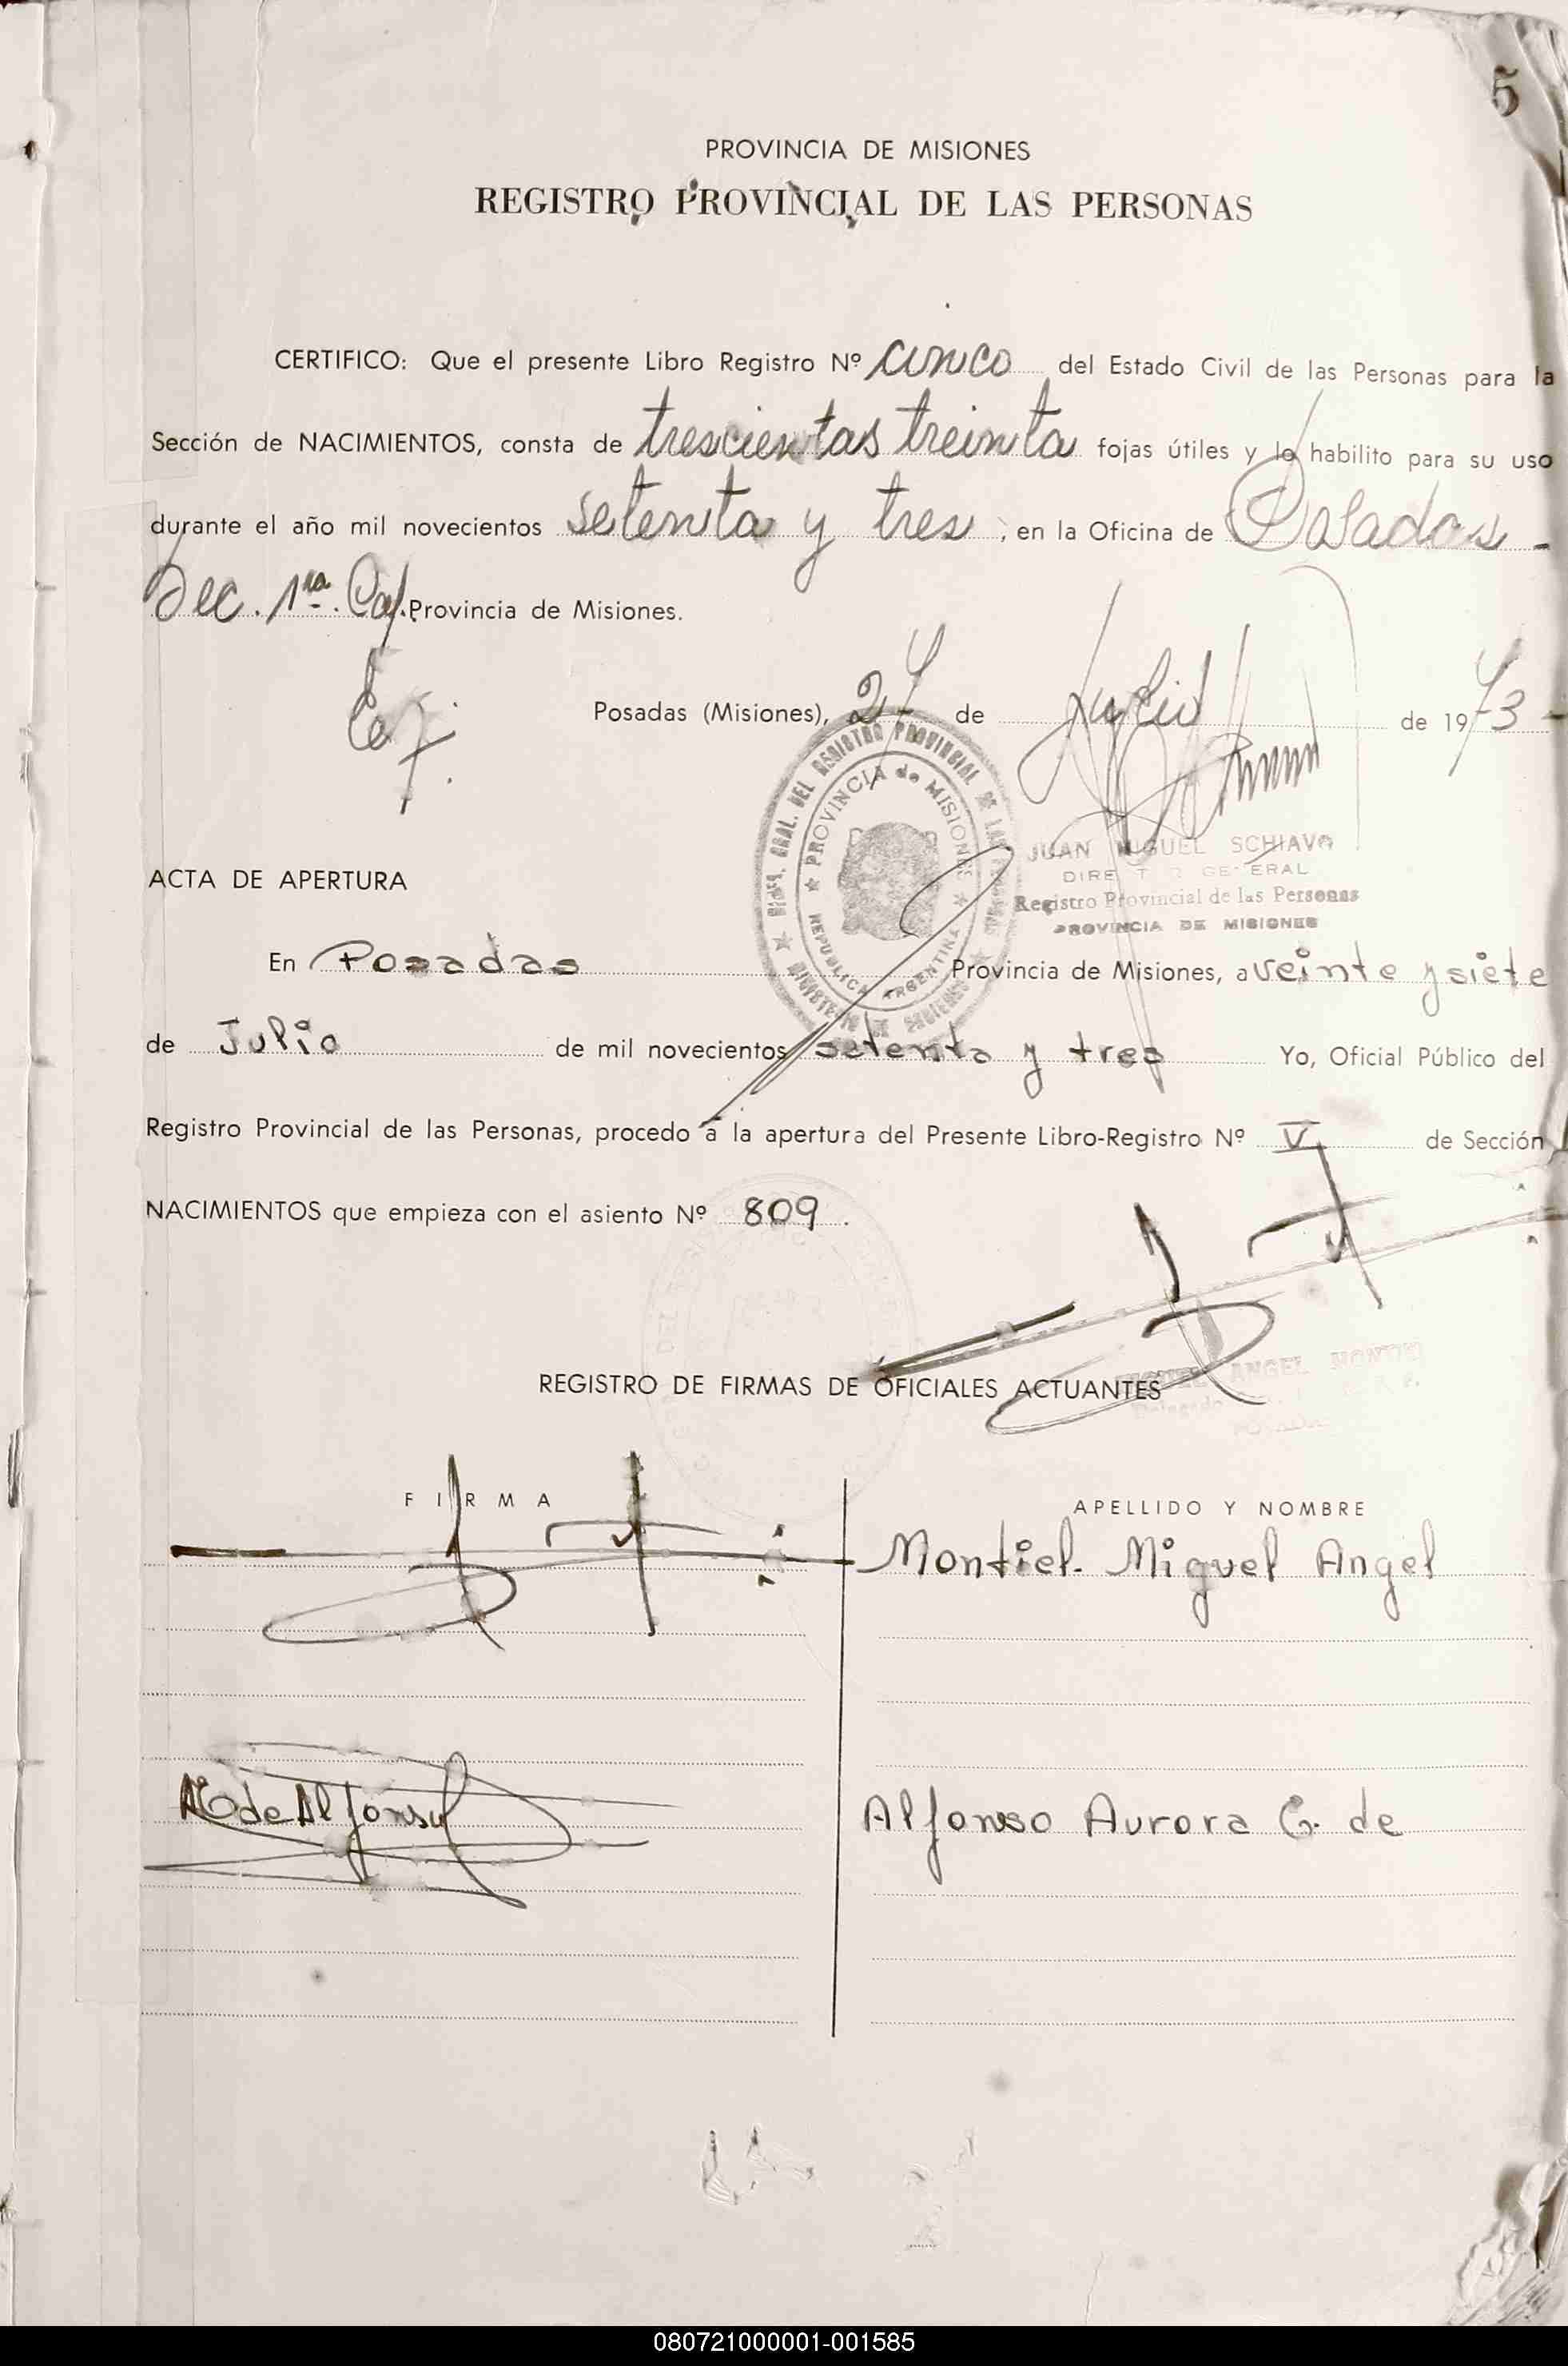 5
PROVINCIA DE MISIONES
REGISTRO PROVINCIAL DE LAS PERSONAS
CERTIFICO: Que el presente Libro Registro Nº cinco del Estado Civil de las Personas para la
Sección de NACIMIENTOS, consta de trescientas treinta fojas útiles y lo habilito para su uso
durante el año mil novecientos setenta y tres, en la Oficina de Posadas -
Sec. 1ra. Provincia de Misiones.
Posadas (Misiones), 27 de Julio de 1973-
DIREC. GRAL. DEL REGISTRO PROVINCIAL DE LAS
PROVINCIA de MISIONES
REPUBLICA ARGENTINA
JUAN MIGUEL SCHIAVO
DIRECTOR GENERAL
Registro Provincial de las Personas
PROVINCIA DE MISIONES
ACTA DE APERTURA
En Posadas Provincia de Misiones, a veinte y siete
de Julio de mil novecientos setenta y tres Yo, Oficial Público del
Registro Provincial de las Personas, procedo a la apertura del Presente Libro-Registro Nº V de Sección
NACIMIENTOS que empieza con el asiento Nº 809.
MIGUEL ANGEL MONTIEL
REGISTRO DE FIRMAS DE OFICIALES ACTUANTES
FIRMA APELLIDO Y NOMBRE
Montiel. Miguel Angel
de Alfonso Alfonso Aurora G. de
080721000001-001585